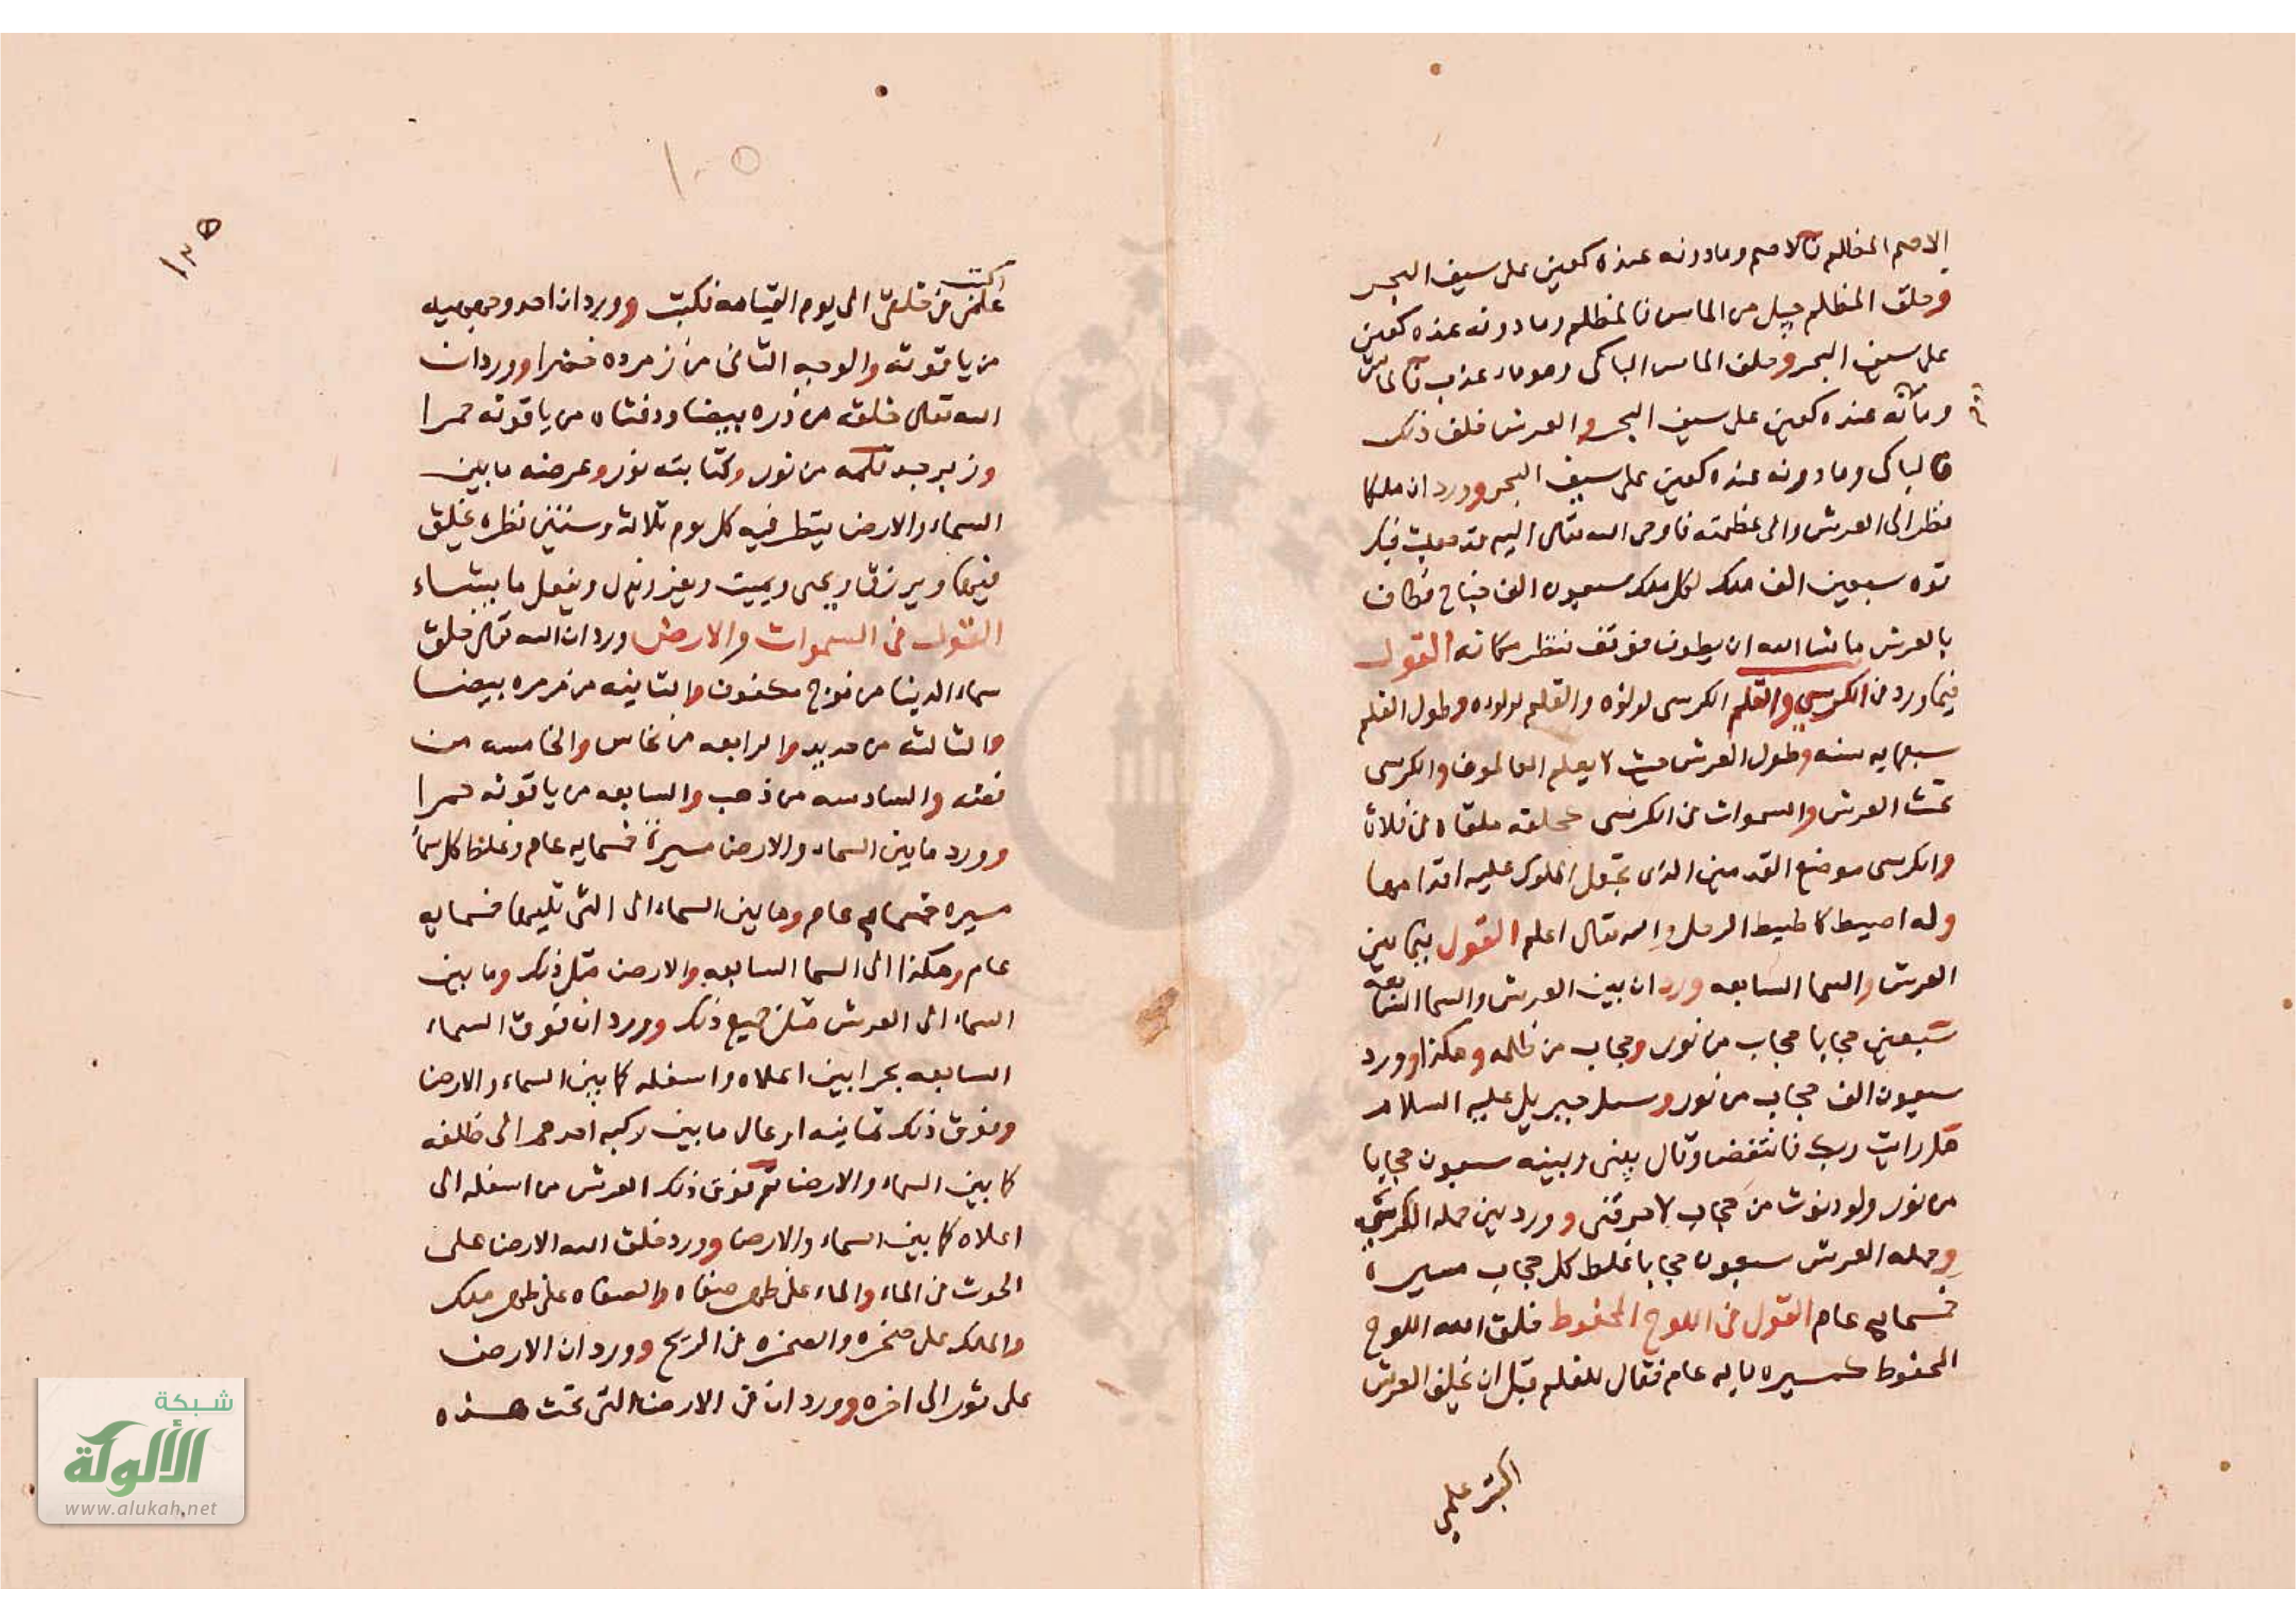 الاصم المظلم فالاصم وما دونه عنده كعين على سيف البحر
وخلق المظلم جبل من الماس فالمظلم وما دونه عنده كعين
على سيف البحر وخلق الماس الباكي وهو ماء عذب فالماس
وما دونه عنده كعين على سيف البحر والعرش خلف ذلك
فالباكى وما دونه عنده كعين على سيف البحر وورد ان ملكا
نظر الى العرش والى عظمته فاوحى الله تعالى اليه قد جعلت فيك
قوه سبعين الف ملك لكل ملك سبعون الف جناح فطاف
بالعرش ما شا الله ان يطوف فوقف فنظر مكانه القول
فيما ورد في الكرسي والقلم الكرسى لولؤه والقلم لولوه وطول القلم
سبعمايه سنه وطول العرش حيث لا يعلم العالمون والكرسى
تحت العرش والسموات في الكرسى كحلقه ملقاه في فلاة
والكرسى موضع القدمين الذى تجعل الملوك عليه اقدامها
وله اطيط كاطيط الرحل والله تعالى اعلم القول فيما بين
العرش والسما السابعه ورد ان بين العرش والسما السابعه
سبعين حجابا حجاب من نور وحجاب من ظلمه وهكذا وورد
سبعون الف حجاب من نور وسئل جبريل عليه السلام
هل رايت ربك فانتفض وقال بينى وبينه سبعون حجابا
من نور ولو دنوت من حجاب لاحرقنى وورد بين حمله الكرسي
وحمله العرش سبعون حجابا غلظ كل حجاب مسيرة
خمسمايه عام القول في اللوح المحفوظ خلق الله اللوح
المحفوظ كمسيره مايه عام فقال للقلم قبل ان يخلق العرش
اكتب علمي
اكتب
علمى فى خلقى الى يوم القيامه فكتب وورد ان احد وجهيه
من ياقوته والوجه الثانى من زمرده خضرا وورد ان
الله تعالى خلقه من دره بيضا ودفتاه من ياقوته حمرا
وزبرجد قلمه من نور وكتابته نور وعرضه ما بين
السماء والارض ينظر فيه كل يوم ثلاثه وستين نظره يخلق
فيها ويرزق ويحى ويميت ويعز ويذل ويفعل ما يشاء
القول فى السموات والارض ورد ان الله تعالى خلق
سماء الدينا من موج مكفوف والثانيه من مرمره بيضا
والثالثه من حديد والرابعه من نحاس والخامسه من
فضه والسادسه من ذهب والسابعه من ياقوته حمرا
وورد ما بين السماء والارض مسيرة خمسمايه عام وغلظ كل سما
مسيره خمسمايه عام وما بين السماء الى التى تليها خمسمايه
عام وهكذا الى السما السابعه والارض مثل ذلك وما بين
السماء الى العرش مثل جميع ذلك وورد ان فوق السماء
السابعه بحرا بين اعلاه واسفله كما بين السماء والارض
وفوق ذلك ثمانيه اوعال ما بين ركبه احدهم الى ظلفه
كما بين السماء والارض ثم فوق ذلك العرش من اسفله الى
اعلاه كما بين السماء والارض وورد خلق الله الارض على
الحوت فى الماء والماء على ظهر صفاه والصفاه على ظهر ملك
والملك على صخره والصخره فى الريح وورد ان الارض
على ثور الى اخره وورد ان فى الارض التى تحت هذه
١٠٥
١٢٥
شبكة
الألوكة
www.alukah.net